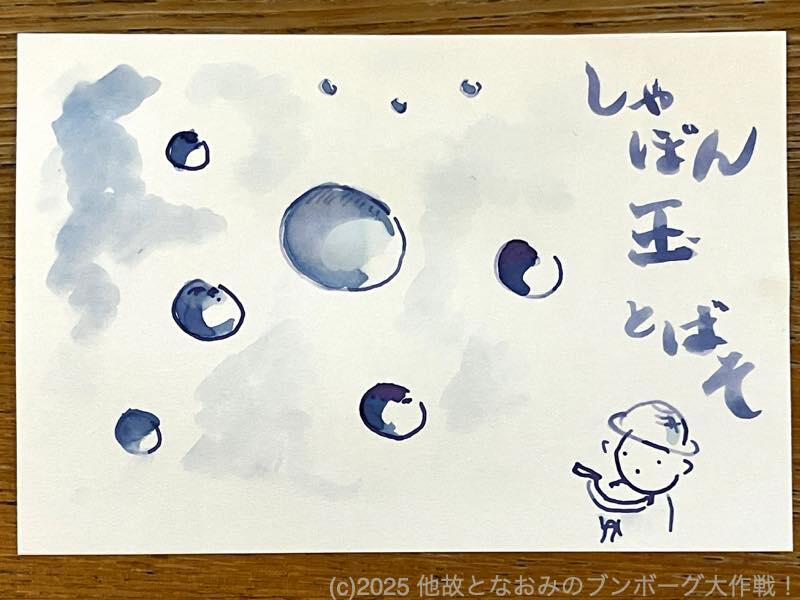 しゃ
ぼん
玉
とば
そ
(c)2025 他故となおみのブンボーグ大作戦！